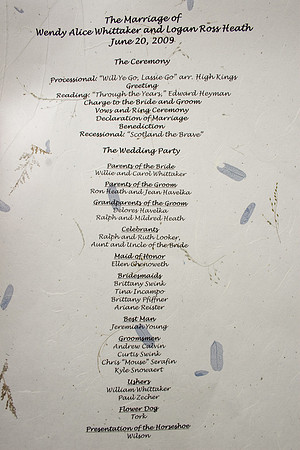 The Marriage of
Wendy Alice Whittaker and Logan Ross Heath
June 20, 2009
The Ceremony
Processional: "Will Ye Go, Lassie Go" arr. High Kings
Greeting
Reading: "Through the Years," Edward Heyman
Charge to the Bride and Groom
Vows and Ring Ceremony
Declaration of Marriage
Benediction
Recessional: "Scotland the Brave"
The Wedding Party
Parents of the Bride
Willie and Carol Whittaker
Parents of the Groom
Ron Heath and Jean Havelka
Grandparents of the Groom
Delores Havelka
Ralph and Mildred Heath
Celebrants
Ralph and Ruth Looker,
Aunt and Uncle of the Bride
Maid of Honor
Ellen Ghenoweth
Bridesmaids
Brittany Swink
Tina Incampo
Brittany Pfiffner
Ariane Reister
Best Man
Jeremiah Young
Groomsmen
Andrew Calvin
Curtis Swink
Chris "Mouse" Serafin
Kyle Snowaert
Ushers
William Whittaker
Paul Zecher
Flower Dog
Tork
Presentation of the Horseshoe
Wilson